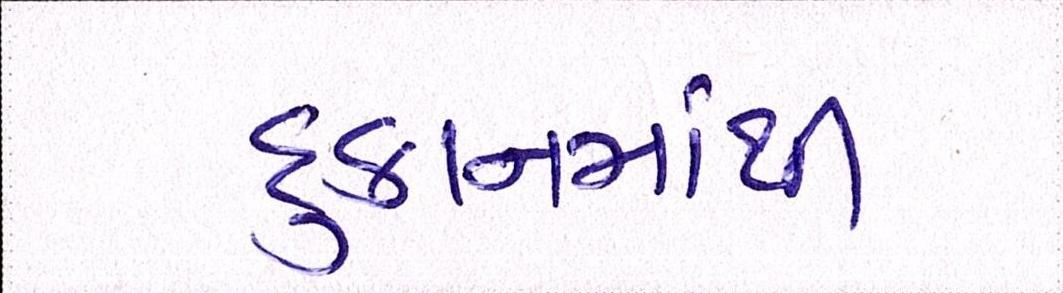 દુકાનમાંથી